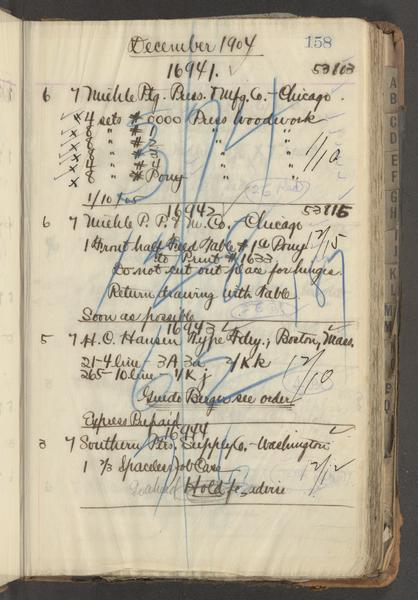 December 1904 158
16941. 53803
6 7 Miehle Ptg. Press. & Mfg. Co. - Chicago.
4 sets # 0000 Press Woodwork
8 " # 1 " "
8 " # 2 " "
8 " # 3 " "
4 " # 4 " "
8 " # Pony " "
1/10
1/10/05
16942 53815
6 7 Miehle P. P. & M. Co. - Chicago
1 Front half Feed Table # 1 Pony 12/15
to Print # 1633
Do not cut out place for hinges.
Return drawing with Table
Soon as possible
16943
5 7 H. C. Hansen Type Fdry., Boston, Mass.
21-4 line 3A 3a 4/K k
265-10 line 4/K j 12/10
Guide Burger see order
Express Prepaid
16944
3 7 Southern Prs. Supply Co. - Washington
1 2/3 Spacered Job Case 12/12
Hold for advise
A
B
C
D
E
F
G
H